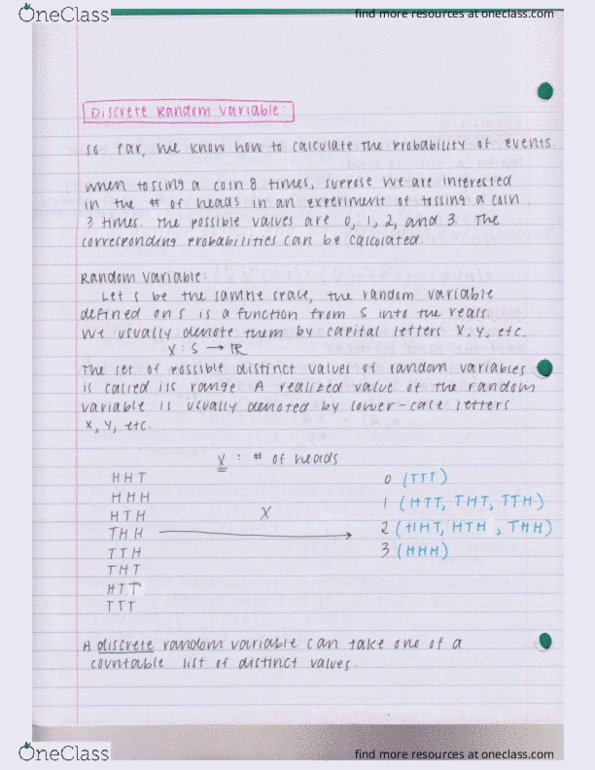 OneClass
find more resources at oneclass.com
Discrete Random Variable:
so far, we know how to calculate the probability of events
when tossing a coin 8 times, suppose we are interested
in the # of heads in an experiment of tossing a coin
3 times. The possible values are 0, 1, 2, and 3. The
corresponding probabilities can be calculated.
Random Variable:
Let S be the sample space, the random variable
defined on S is a function from S into the reals.
We usually denote them by capital letters X, Y, etc.
X : S → ℝ
The set of possible distinct values of random variables
is called its range. A realized value of the random
variable is usually denoted by lower-case letters
x, y, etc.
X : # of heads
HHT
HHH
HTH
THH
TTH
THT
HTT
TTT
X
0 (TTT)
1 (HTT, THT, TTH)
2 (HHT, HTH, THH)
3 (HHH)
A discrete random variable can take one of a
countable list of distinct values.
OneClass
find more resources at oneclass.com